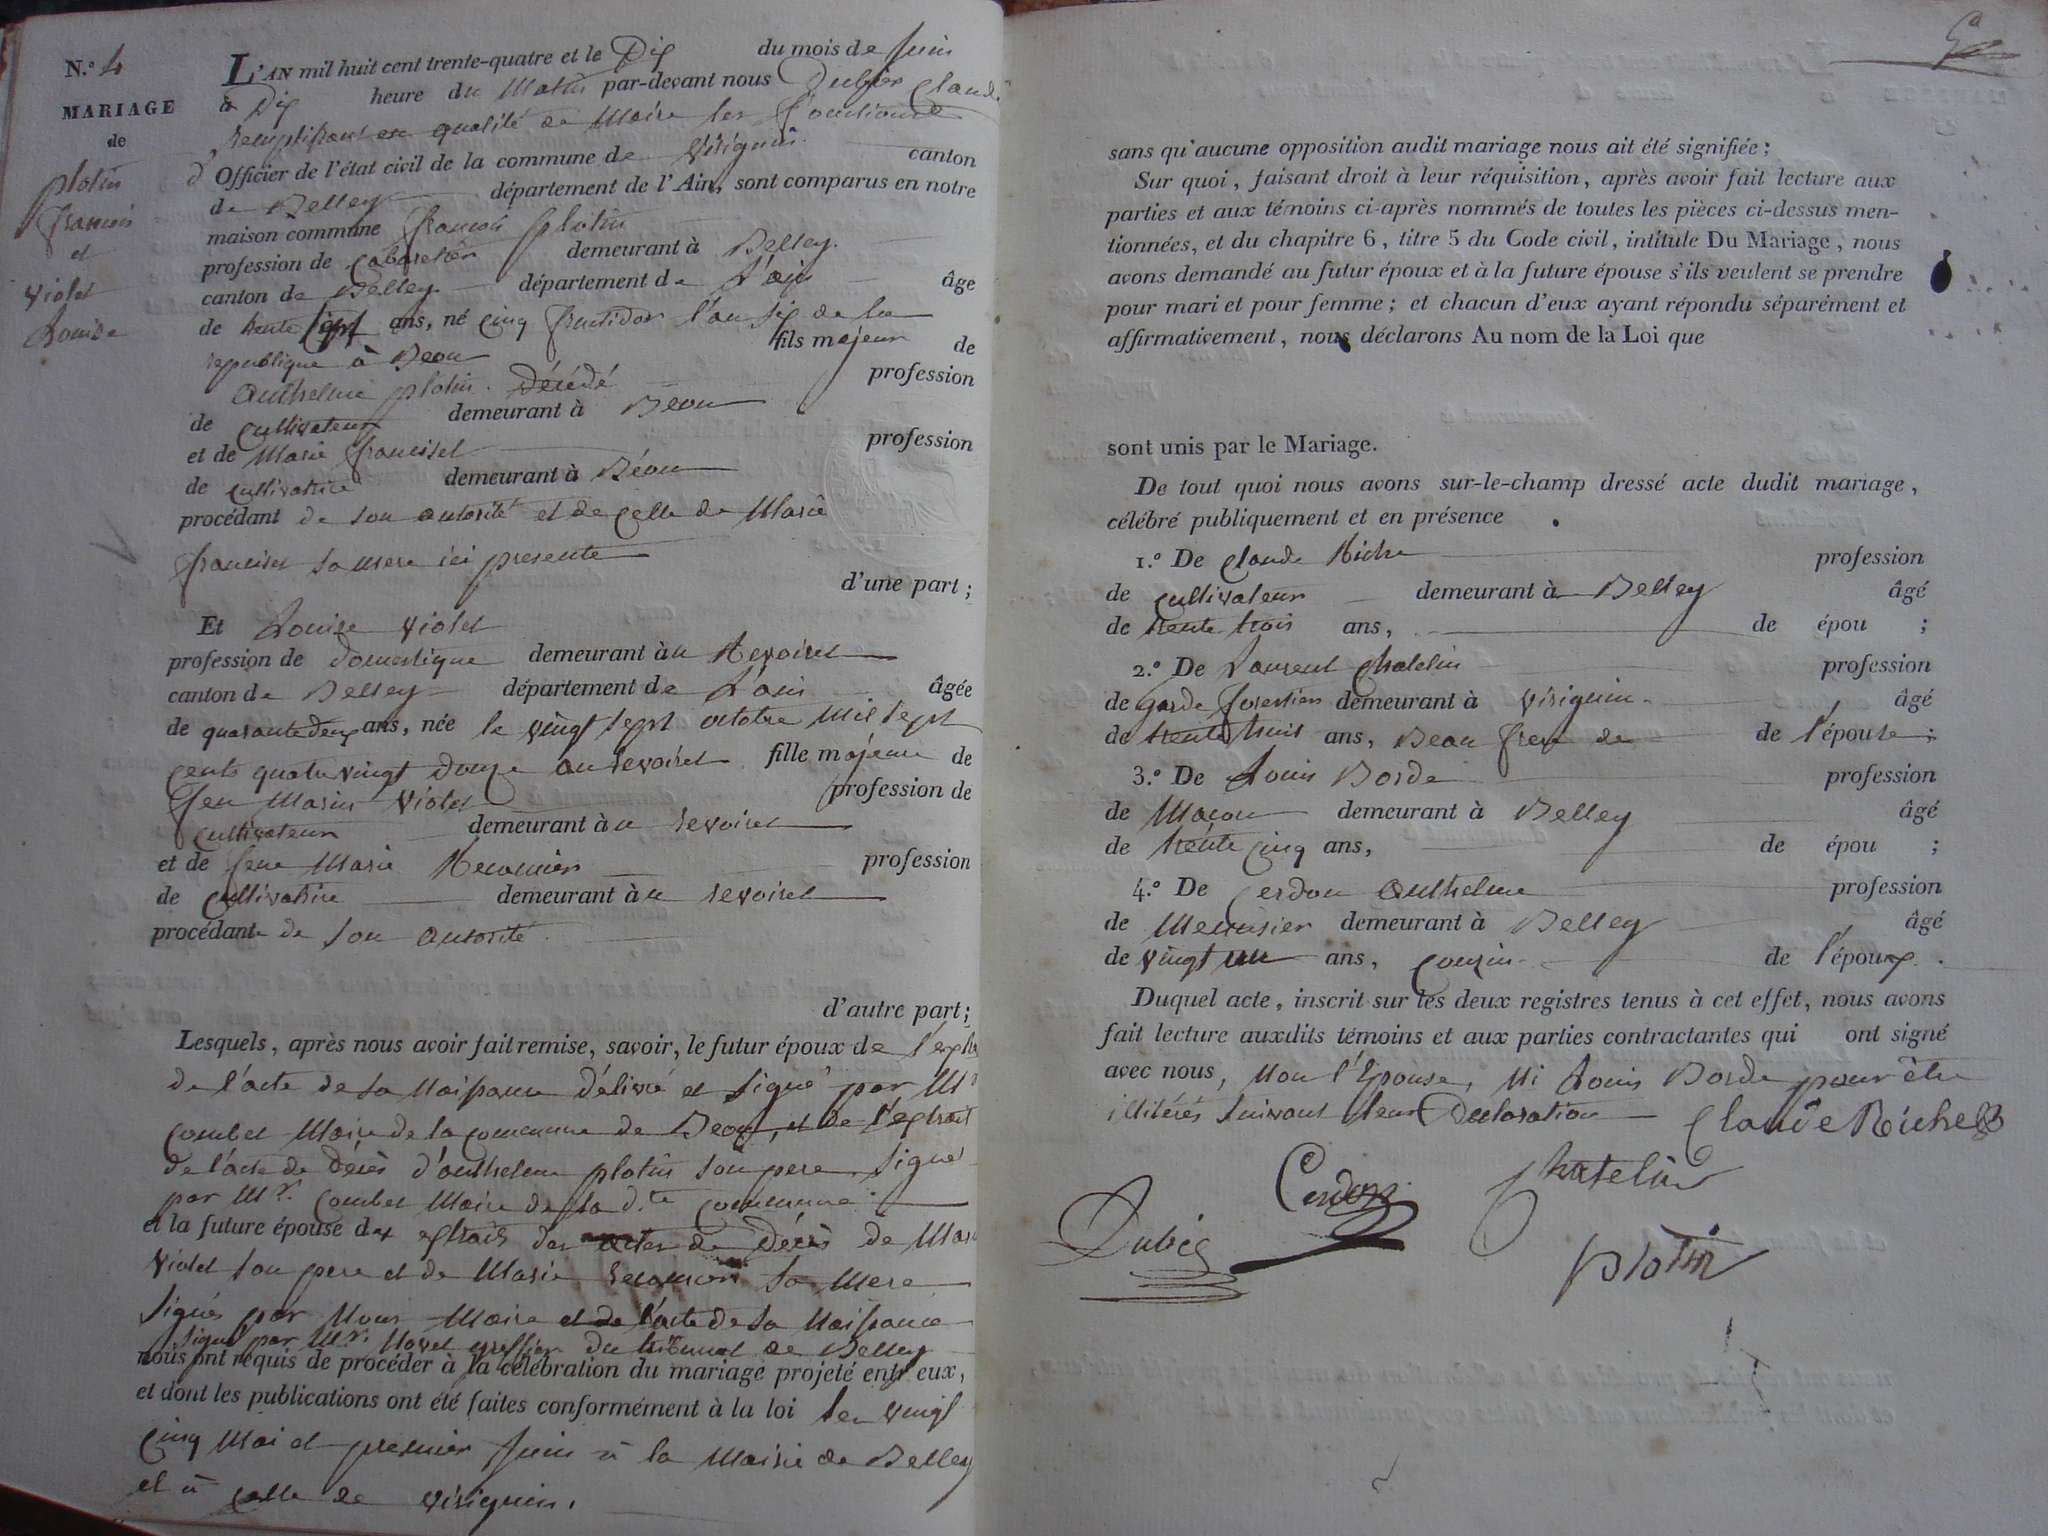 N.º 4
MARIAGE
de
plotin
françois
et
Violet
Louise
L'AN mil huit cent trente-quatre et le Dix du mois de Juin
à Dix heure du Matin par-devant nous Dubiez Claude
remplissant en qualité de Maire les fonctions
d'Officier de l'état civil de la commune de Virignin canton
de Belley département de l'Ain, sont comparus en notre
maison commune françois plotin
profession de Cabaretier demeurant à Belley.
canton de Belley département de L'ain âgé
de trente sept ans, né cinq fructidor l'an six de la
republique à Beon fils majeur de
Anthelme plotin. Décédé profession
de cultivateur demeurant à Beon
et de Marie franciset profession
de cultivatrice demeurant à Béon
procédant de son autorité et de celle de Marie
franciset sa mere ici presente
d'une part;
Et Louise Violet
profession de domestique demeurant au Revoiret
canton de Belley département de L'ain âgée
de quarante deux ans, née le vingt sept octobre Mil sept
cents quatre vingt douze au revoiret fille majeure de
feu Marin Violet profession de
cultivateur demeurant au revoiret
et de feue Marie profession
de cultivatrice demeurant au revoiret
procédante de son autorité
d'autre part;
Lesquels, après nous avoir fait remise, savoir, le futur époux de
de l'acte de sa Naissance délivré et signé par Mr
combet Maire de la commune de Beon, et de l'extrait
de l'acte de Décès d'anthelme plotin son pere signé
par Mr. combet Maire de la d.te commune
et la future épouse des extraits des actes de Décès de
Violet son pere et de Marie sa Mere
signés par Nous Maire et de l'acte de sa Naissance
signé par Mr. greffier du tribunal de Belley
nous ont requis de procéder à la célébration du mariage projeté entr'eux,
et dont les publications ont été faites conformément à la loi les vingt
cinq Mai et premier Juin à la Mairie de Belley
et à celle de Virignin.
sans qu'aucune opposition audit mariage nous ait été signifiée;
Sur quoi, faisant droit à leur réquisition, après avoir fait lecture aux
parties et aux témoins ci-après nommés de toutes les pièces ci-dessus men-
tionnées, et du chapitre 6, titre 5 du Code civil, intitule Du Mariage, nous
avons demandé au futur époux et à la future épouse s'ils veulent se prendre
pour mari et pour femme; et chacun d'eux ayant répondu séparément et
affirmativement, nous déclarons Au nom de la Loi que
sont unis par le Mariage.
De tout quoi nous avons sur-le-champ dressé acte dudit mariage,
célébré publiquement et en présence
1.º De Claude Riche profession
de cultivateur demeurant à Belley âgé
de trente trois ans, de épou ;
2.º De Laurent Chatelin profession
de garde forestier demeurant à Virignin âgé
de trente huit ans, Beau frere de de l'épouse;
3.º De Louis Borde profession
de Macon demeurant à Belley âgé
de trente cinq ans, de épou ;
4.º De Cerdon Anthelme profession
de Menuisier demeurant à Belley âgé
de vingt un ans, cousin de l'époux.
Duquel acte, inscrit sur les deux registres tenus à cet effet, nous avons
fait lecture auxdits témoins et aux parties contractantes qui ont signé
avec nous, Non l'Epouse, Ni Louis Borde pour être
illitérés suivant leur Déclaration
Claude Riche
Cerdon
Chatelin
Dubiez
plotin